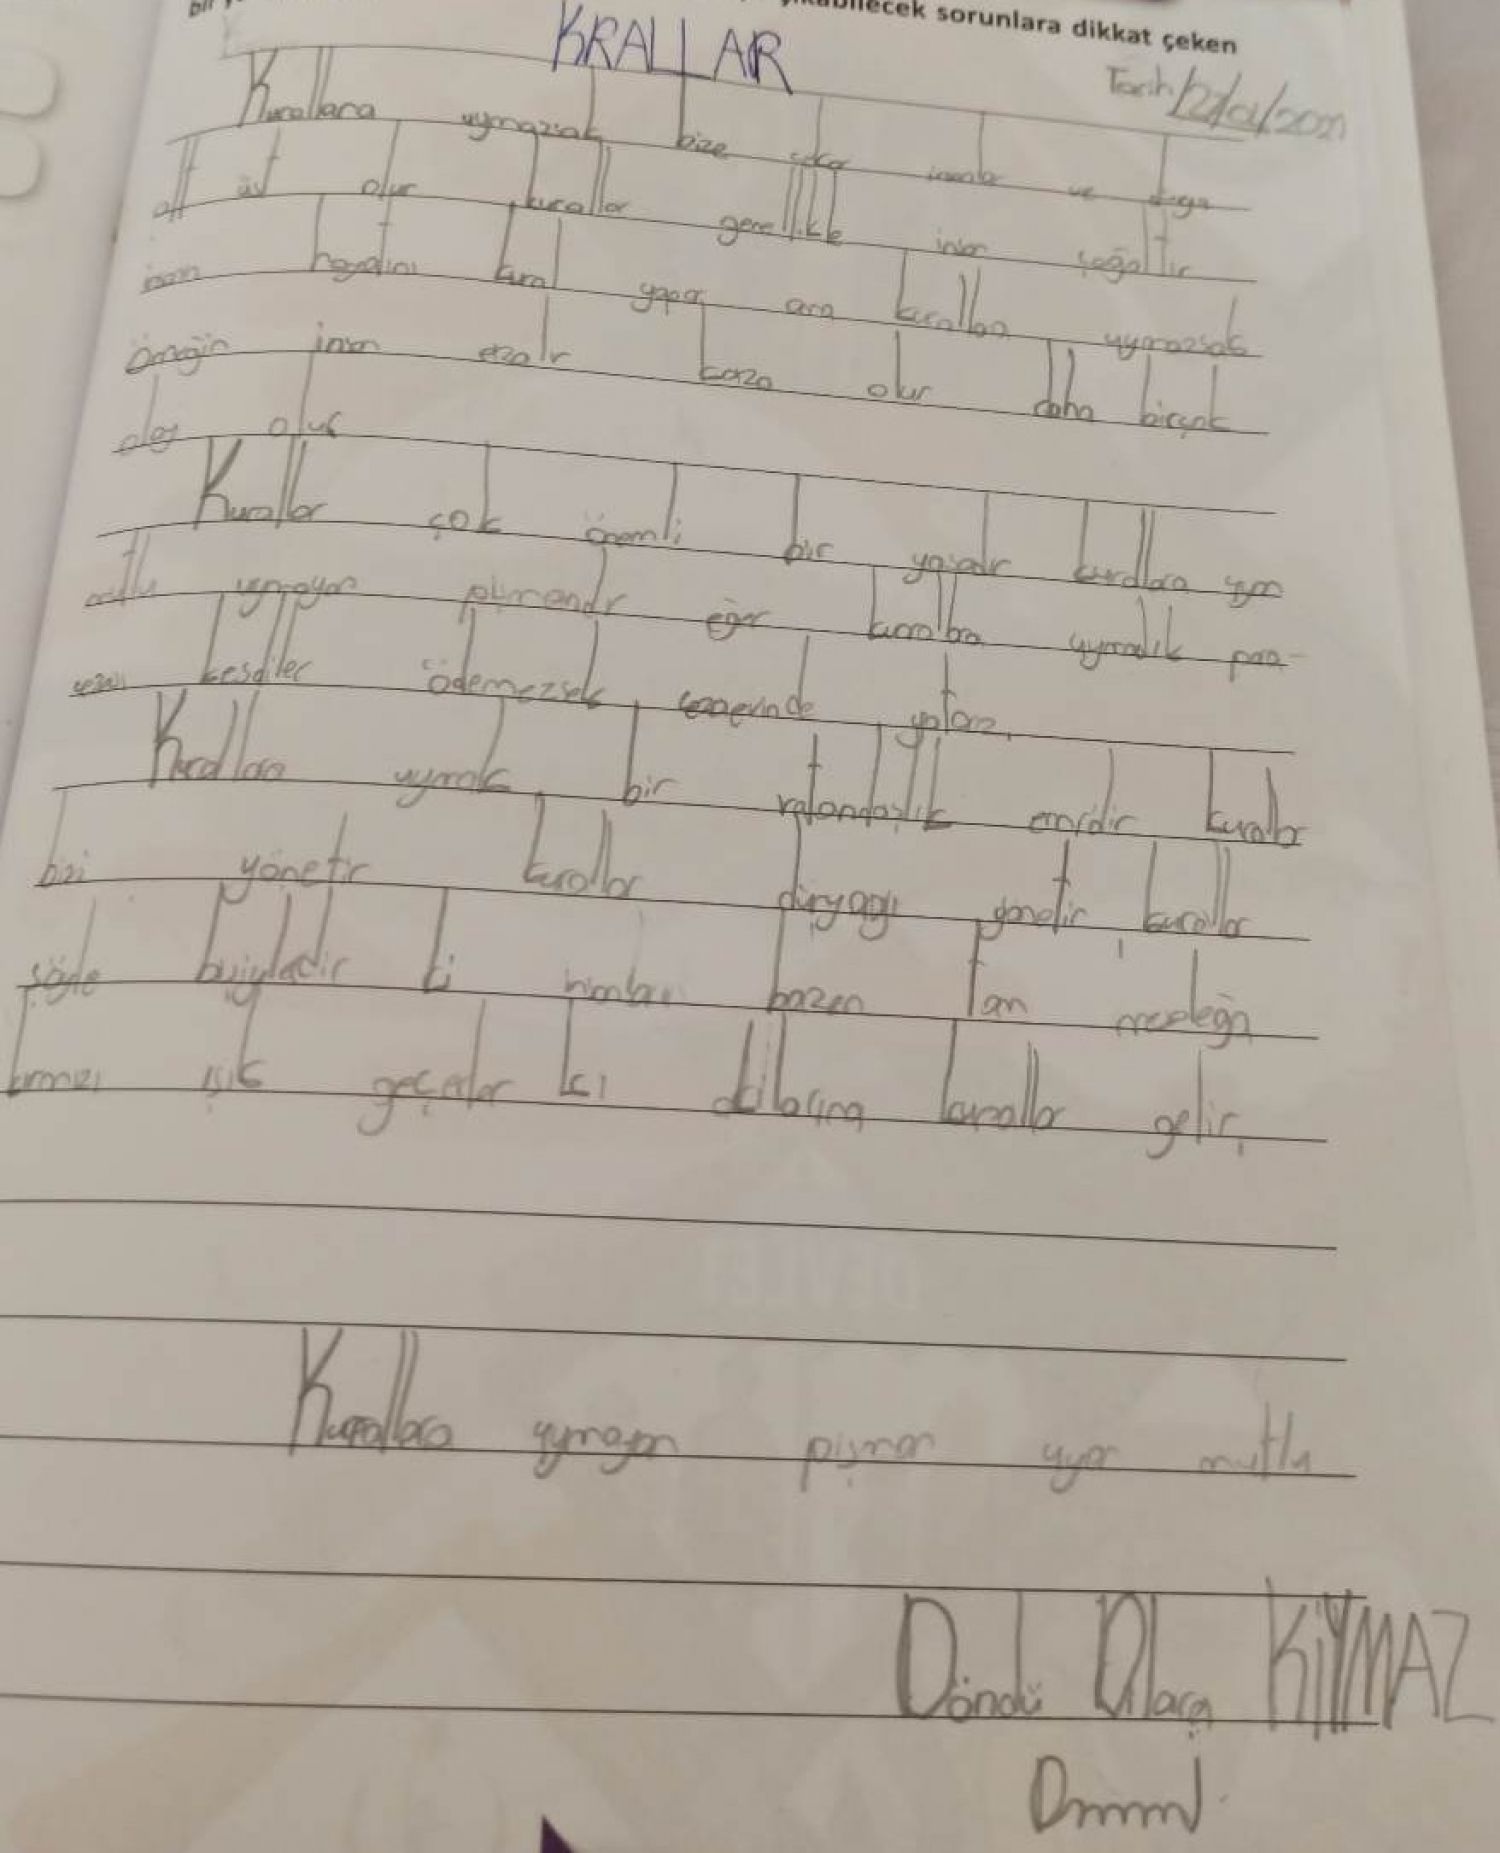 sorunlara dikkat çeken
KRALLAR
Tarih 12/01/2021
Kurallara uymazsak bize insanlar ve doğa
alt üst olur kurallar genellikle insan çoğaltır
insan hayatını kural yapar ama kurallara uymazsak
örneğin insan ezalır kaza olur daha birçok
olay olur
Kurallar çok önemli bir yasadır kurallara uyan
mutlu uymayan pişmandır eğer kurallara uymadık para
cezası kesdiler ödemezsek cezaevinde yatarız.
Kurallara uymak bir vatandaşlık emridir kurallar
bizi yönetir kurallar dünyayı yönetir, kurallar
şöyle ki bazen tam mesleğin
kırmızı ışık geçerler ki akıllarına kurallar gelir.
Kurallara uymayan pişman uyar mutlu
Döndü Dilara KIYMAZ